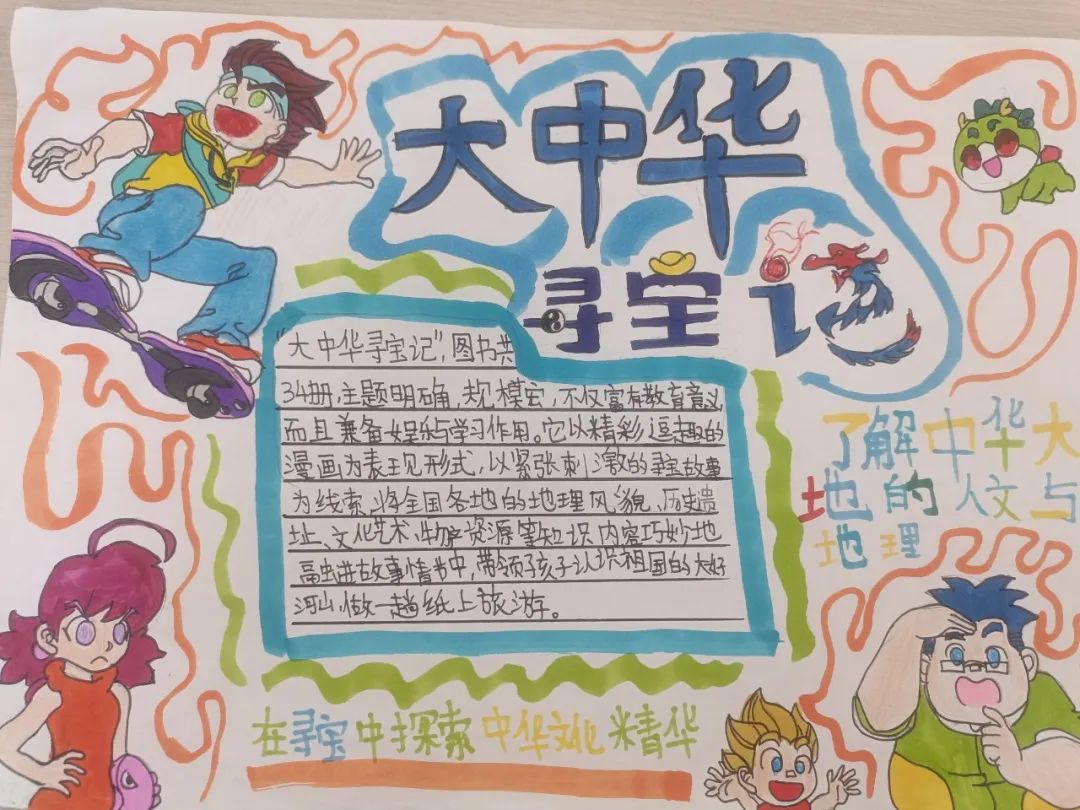 大中华
寻宝记
"大中华寻宝记",图书共
34册,主题明确,规模宏,不仅富有教育意义
而且兼备娱乐与学习作用。它以精彩逗趣的
漫画为表现形式,以紧张刺激的寻宝故事
为线索,将全国各地的地理风貌、历史遗
址、文化艺术、物产资源等知识内容巧妙地
融进故事情节中,带领孩子认识祖国的大好
河山做一趟纸上旅游。
了解中华大
地的人文与
地理
在寻宝中探索中华文化精华